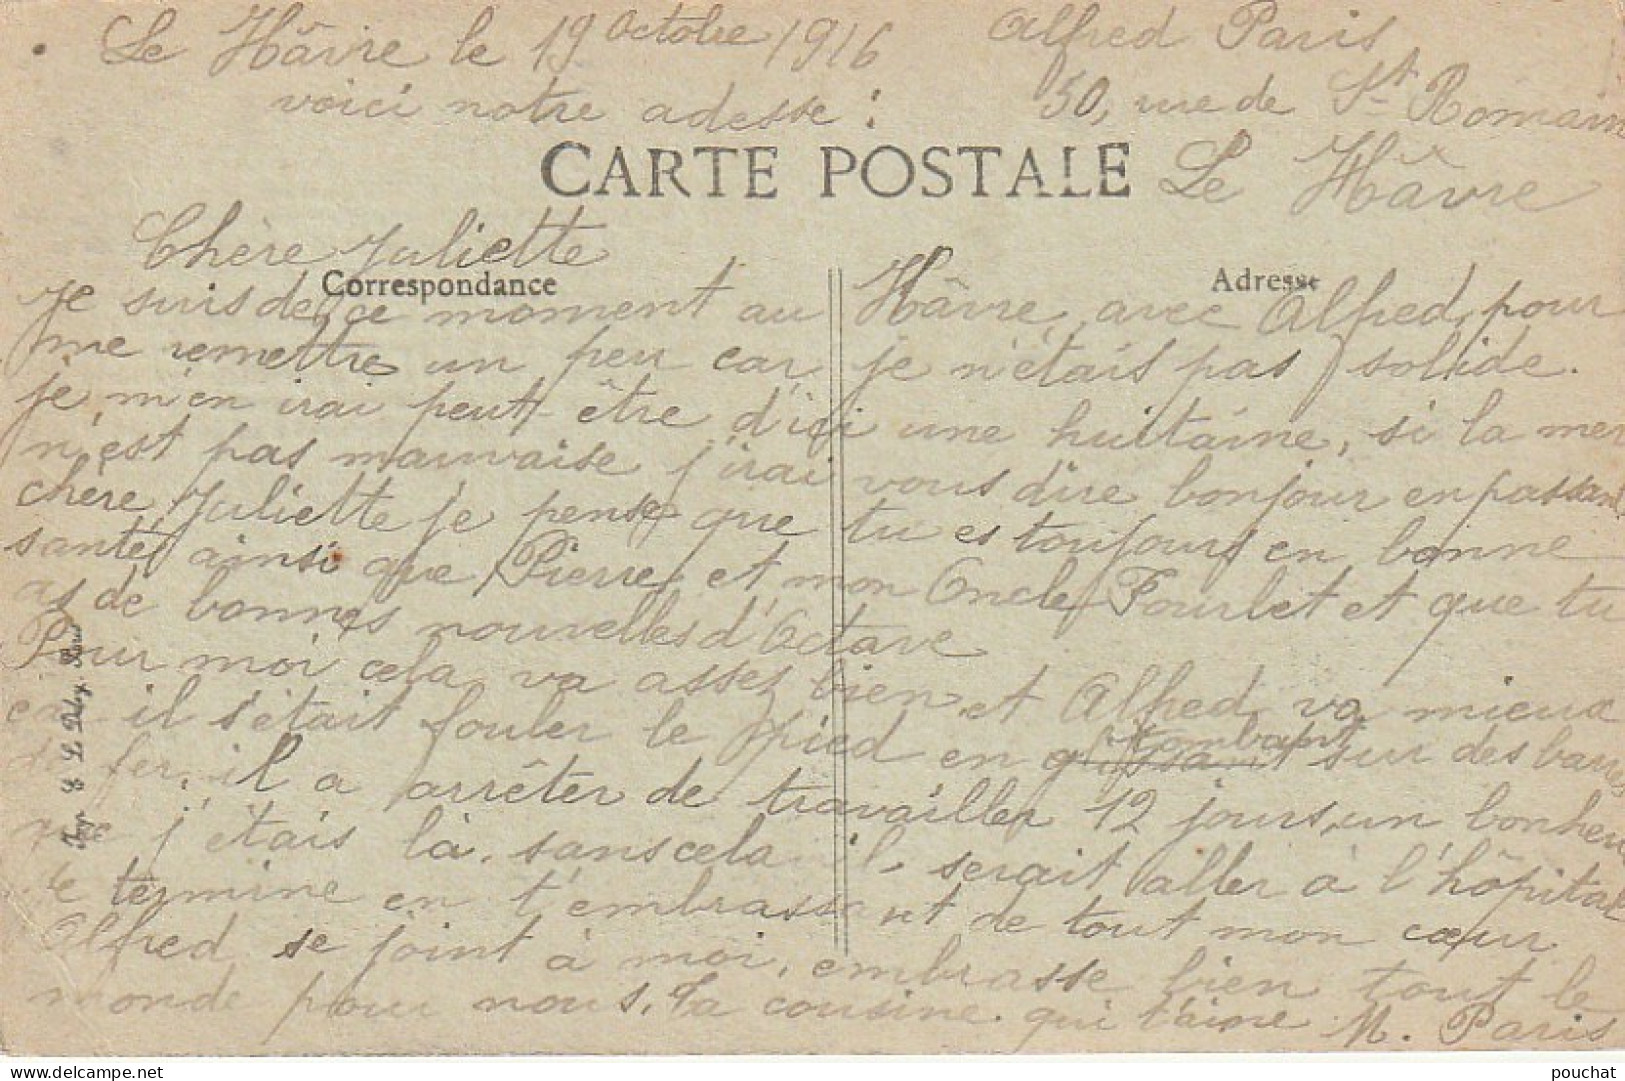 Le Hâvre le 19 Octobre 1916
voici notre adesse :
Alfred Paris
50, rue de St Romain
Le Hâvre
CARTE POSTALE
Correspondance
Adresse
Chère Juliette
Je suis de ce moment au Hâvre, avec Alfred, pour
me remettre un peu car je n'étais pas solide.
je m'en irai peut être d'ici une huitaine, si la mer
n'est pas mauvaise j'irai vous dire bonjour en passant
chère Juliette je pense que tu es toujours en bonne
santé ainsi que Pierre et mon Oncle Fourlet et que tu
as de bonnes nouvelles d'Octave
Pour moi cela va assez bien et Alfred va mieux
car il s'était fouler le pied en glissant tombant sur des barres
de fer, il a arrêter de travailler 12 jours, un bonheur
que j'étais là, sans cela il serait aller à l'hôpital
Je termine en t'embrassant de tout mon cœur
Alfred se joint à moi, embrasse bien tout le
monde pour nous. Ta cousine qui t'aime M. Paris
Imp. E. L. D.
© delcampe.net
pouchat